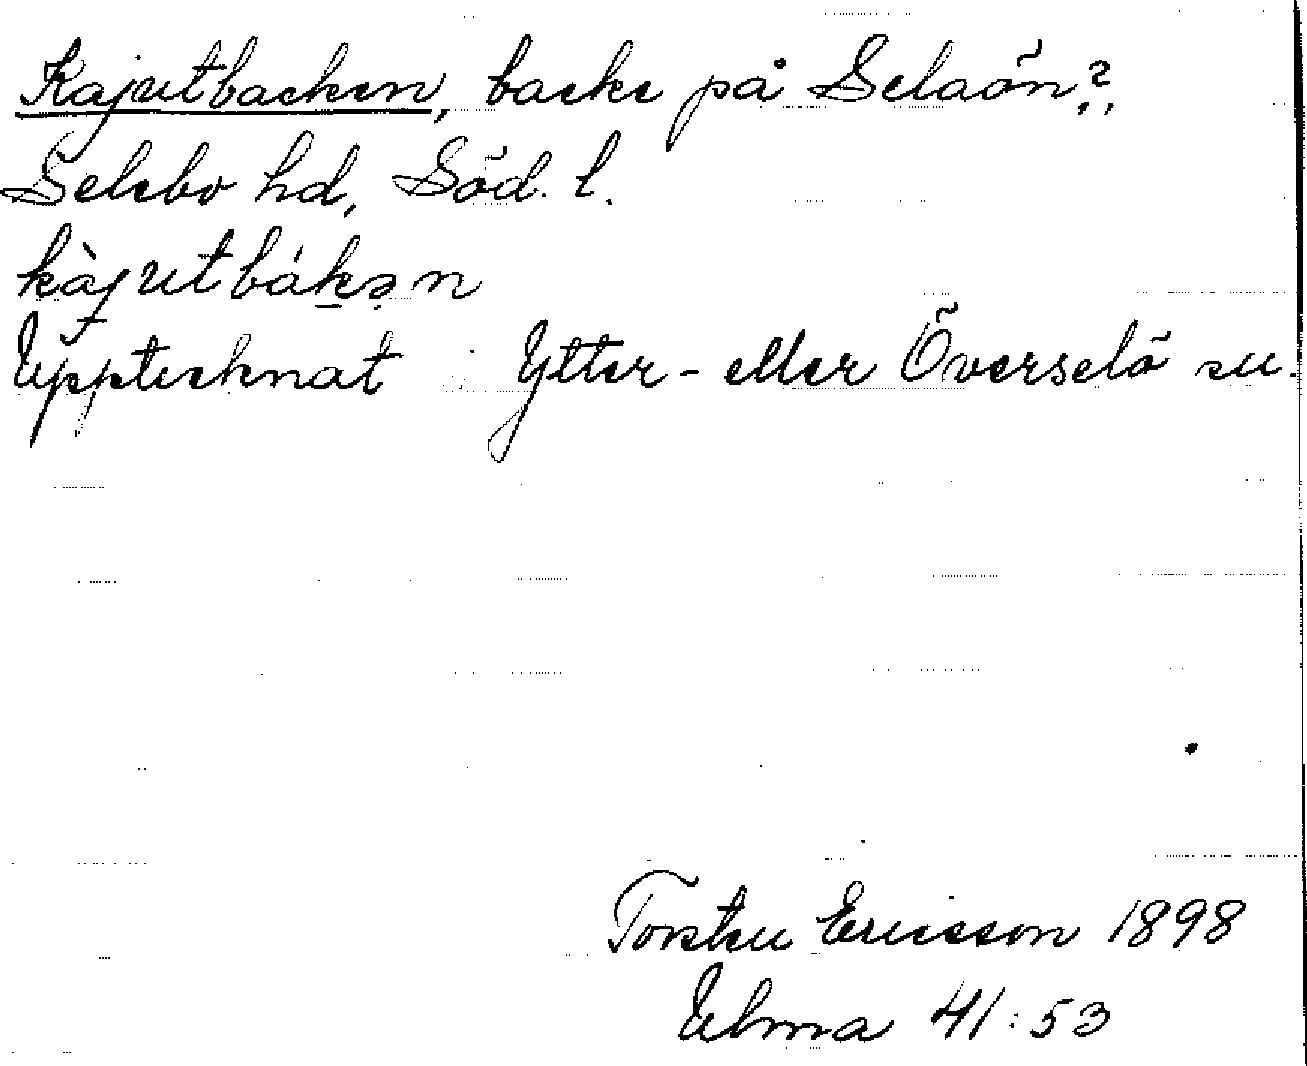 Kajutbacken, backe på Selaön?,
Selebo hd, Söd. l.
kàjutbákǝn
Upptecknat i Ytter- eller Överselö sn.
Torsten Ericsson 1898
Ulma 41:53